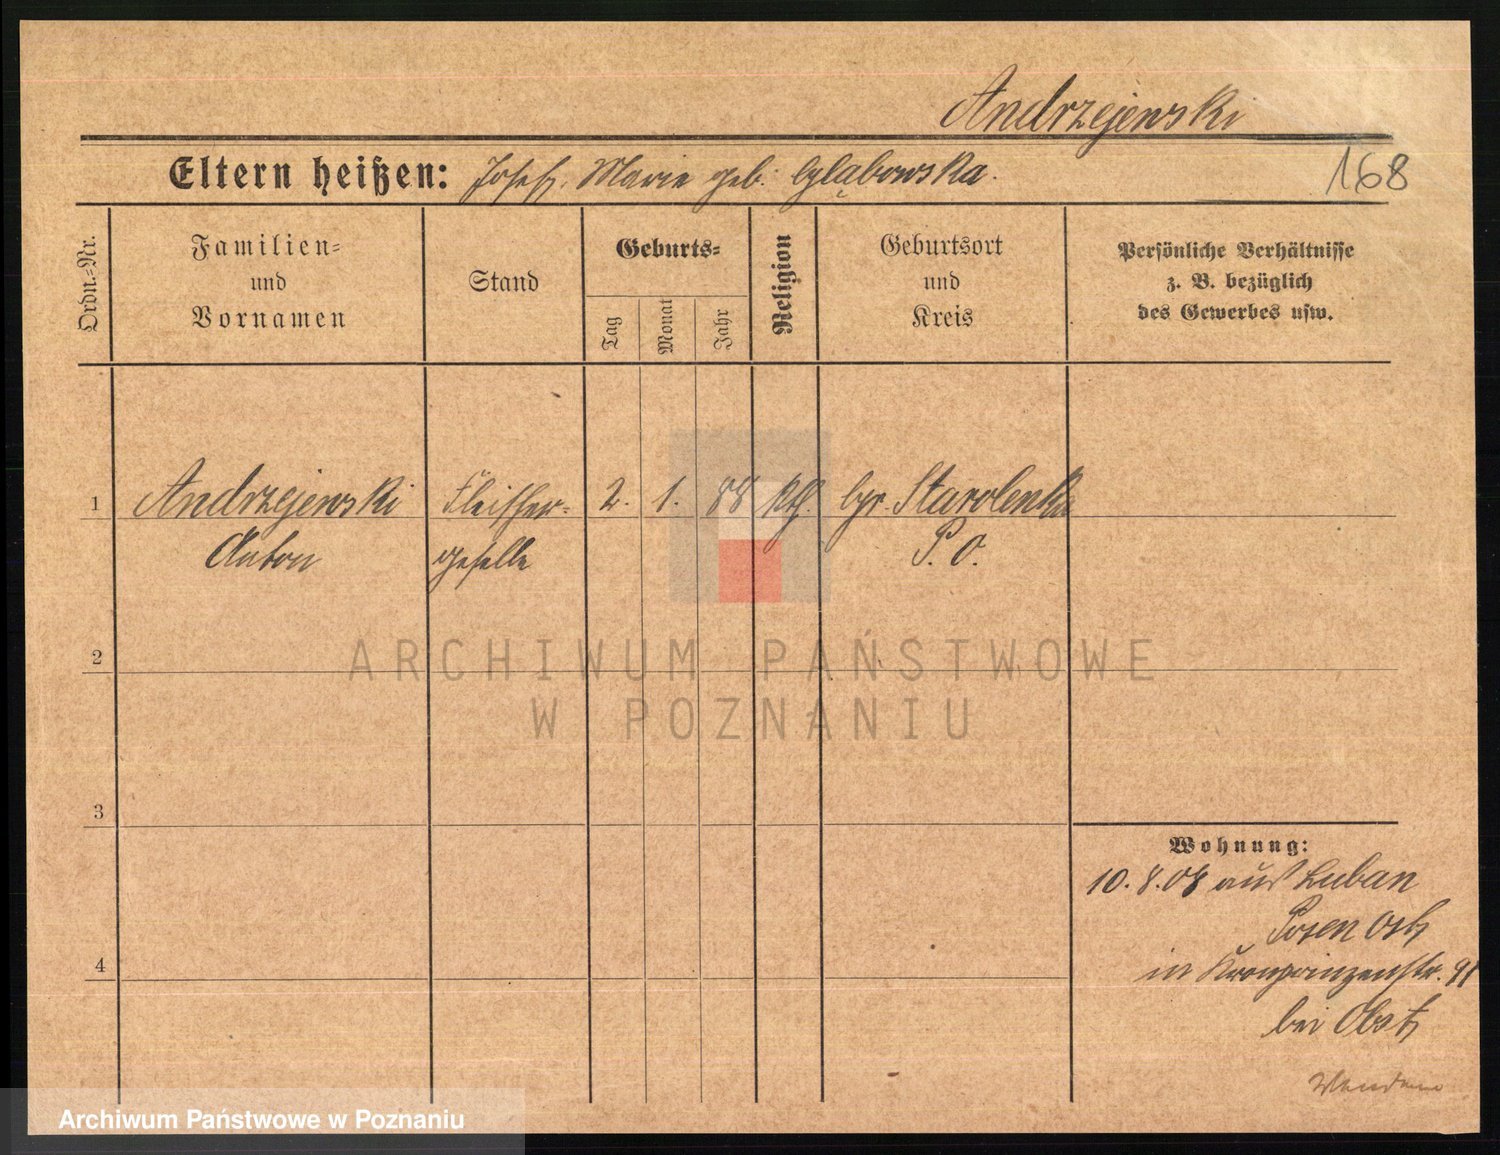 Andrzejewski
Eltern heißen: Josef, Marie geb. Głąbowska.
168
Ordn.=Nr.
Familien=
und
Vornamen
Stand
Geburts=
Tag
Monat
Jahr
Religion
Geburtsort
und
Kreis
Persönliche Verhältnisse
z. B. bezüglich
des Gewerbes usw.
1 Andrzejewski Fleischer= 2. 1. 88 kth. Gr. Starolenka
Anton geselle P. O.
2
3
4
ARCHIWUM PAŃSTWOWE
W POZNANIU
Wohnung:
10. 8. 08 aus Luban
Posen Ost
in Kronprinzenstr. 91
bei Obst
Archiwum Państwowe w Poznaniu